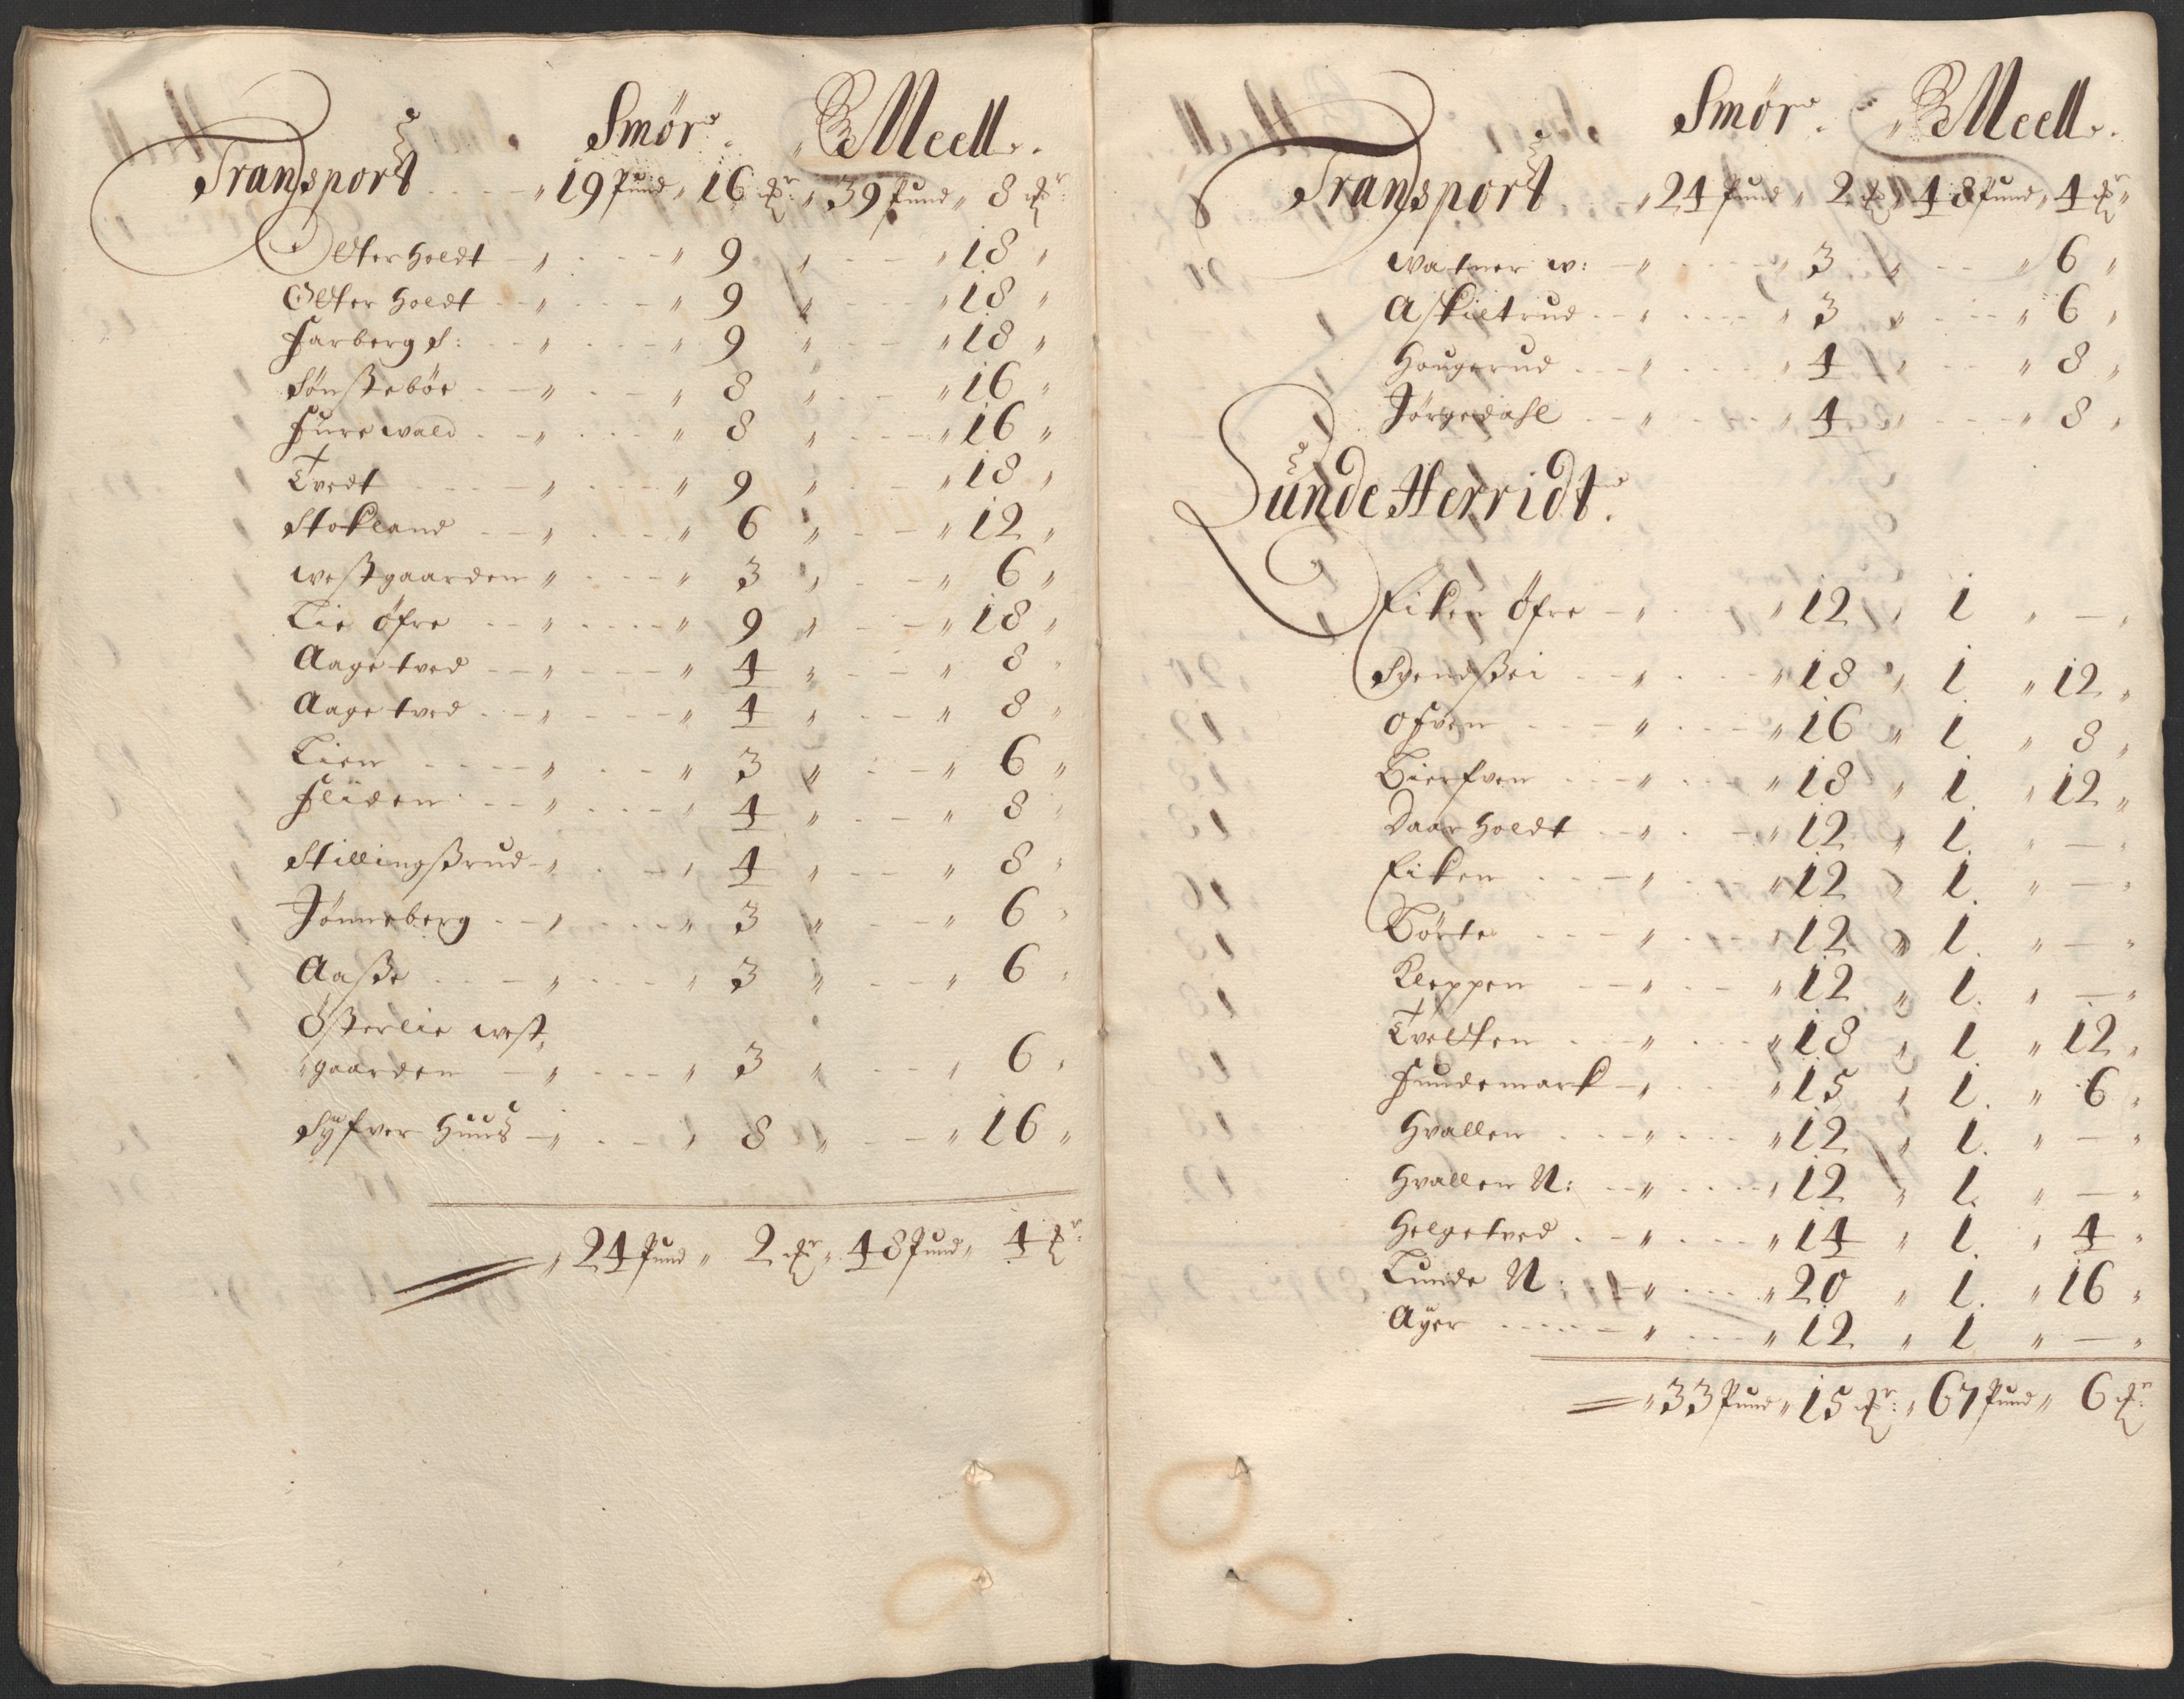 Smør. Meell.
Transport 19 Pund 16 ℔r: 39 Pund 8 ℔r:
Olter Holdt 9 18
Olter Holdt 9 18
Farberg S: 9 18
Sønstebøe 8 16
Furewald 8 16
Tvedt 9 18
Stokland 6 12
westgaarden 3 6
Lie Øfre 9 18
Aagetved 4 8
Aagetved 4 8
Lien 3 6
Flüden 4 8
Stillingsrud 4 8
Jønneberg 3 6
Aasse 3 6
Østerlie west,
gaarden 3 6
Syfver Huus 8 16
24 Pund 2 ℔r 48 Pund 4 ℔r:
Smør. Meell.
Transport 24 Pund 2 ℔ 48 Pund 4 ℔r
Watner w: 3 6
Askiltrud 3 6
Hougerud 4 8
Jørgedahl 4 8
Lunde Herridt.
Eiken Øfre 12 1 —
Svendssei 18 1 12
Ofven 16 1 8
Bierfven 18 1 12
Daarholdt 12 1 —
Eiken 12 1 —
Børte 12 1 —
Kleppen 12 1 —
Tvelten 18 1 12
Fundemark 15 1 6
Hvallen 12 1 —
Hvallen N: 12 1 —
Helgetved 14 1 4
Lunde N: 20 1 16
Ayer 12 1 —
33 Pund 15 ℔r: 67 Pund 6 ℔r